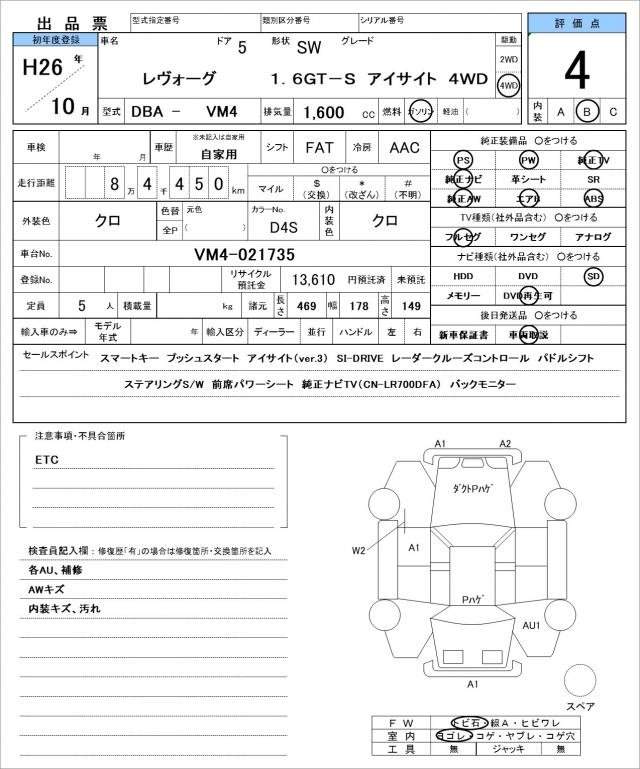 出品票 型式指定番号 類別区分番号 シリアル番号 評価点
初年度登録 車名 ドア 5 形状 SW グレード 駆動
H26 年 レヴォーグ 1.6GT-S アイサイト 4WD 2WD 4WD 4
10 月 型式 DBA - VM4 排気量 1,600 cc 燃料 ガソリン 軽油 ( ) 内装 A B C
車検 年 月 車歴 ※未記入は自家用 自家用 シフト FAT 冷房 AAC 純正装備品 〇をつける
PS PW 純正TV
走行距離 8万 4千 4 5 0 km 〇をつける
マイル $ (交換) * (改ざん) # (不明) 純正ナビ 革シート SR
純正AW エアB ABS
外装色 クロ 色替 元色 全P ( ) カラーNo. D4S 内装色 クロ TV種類(社外品含む) 〇をつける
フルセグ ワンセグ アナログ
車台No. VM4-021735 ナビ種類(社外品含む) 〇をつける
登録No. リサイクル預託金 13,610 円預託済 未預託 HDD DVD SD
定員 5 人 積載量 kg 諸元 長さ 469 幅 178 高さ 149 メモリー DVD再生可
後日発送品 〇をつける
輸入車のみ⇒ モデル年式 年 輸入区分 ディーラー 並行 ハンドル 左 右 新車保証書 車両取説
セールスポイント スマートキー プッシュスタート アイサイト(ver.3) SI-DRIVE レーダークルーズコントロール パドルシフト
ステアリングS/W 前席パワーシート 純正ナビTV(CN-LR700DFA) バックモニター
注意事項・不具合箇所
ETC
検査員記入欄:修復歴「有」の場合は修復箇所・交換箇所を記入
各AU、補修
AWキズ
内装キズ、汚れ
A1 A2
ダクトPハゲ
W2 A1
Pハゲ
AU1
A1
スペア
FW トビ石・線A・ヒビワレ
室内 ヨゴレ・コゲ・ヤブレ・コゲ穴
工具 無 ジャッキ 無